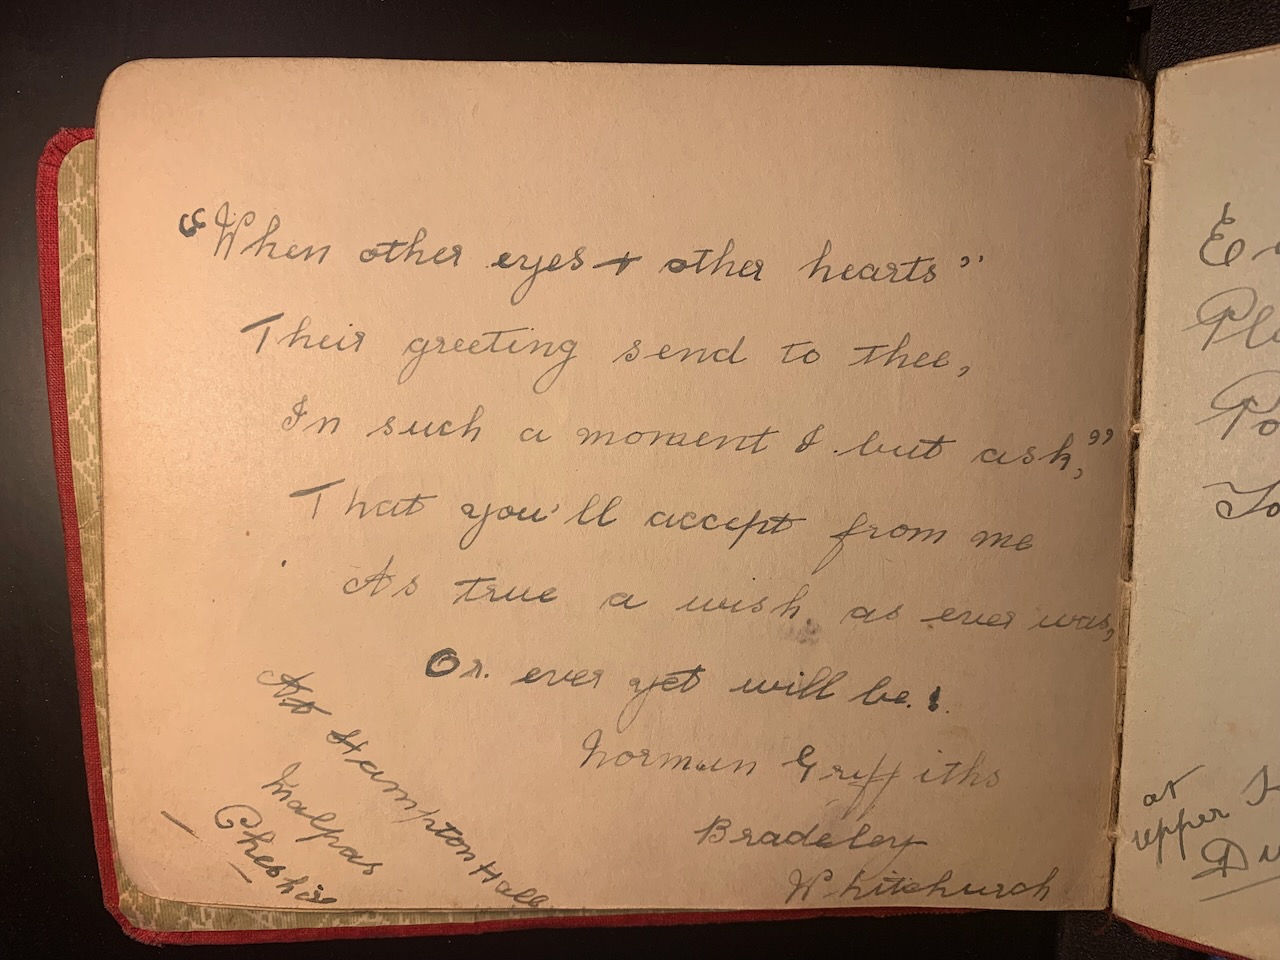 "When other eyes + other hearts"
Their greeting send to thee,
In such a moment I but ask,"
That you'll accept from me
As true a wish as ever was,
Or. ever yet will be.!
Norman Griffiths
Bradeley
Whitchurch
At Hampton Hall
Malpas
Cheshire
at
upper